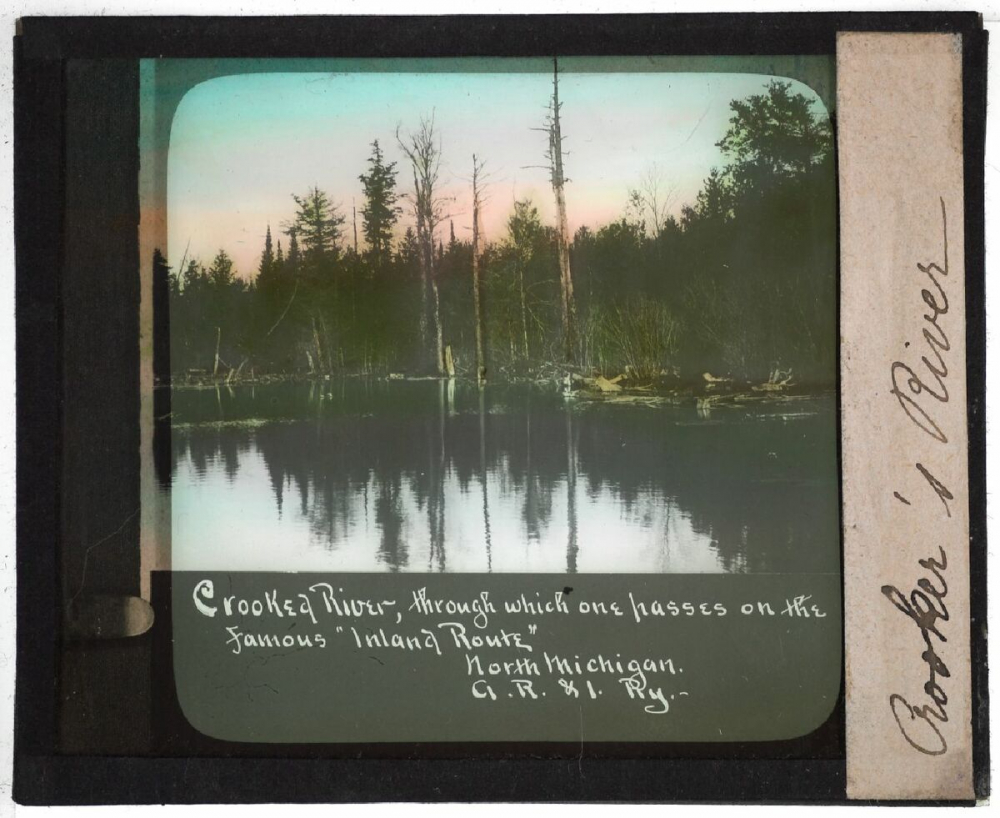 Crooked River, through which one passes on the
famous "Inland Route"
North Michigan.
G. R. & I. Ry.-
Crooker's River